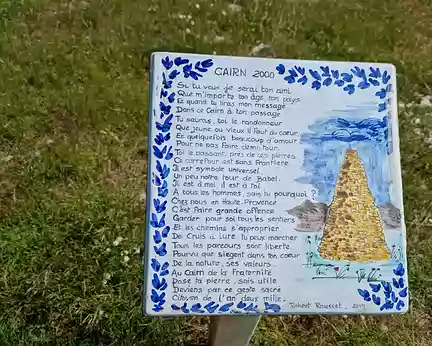 CAIRN 2000
Si tu veux je serai ton ami
Que m'importe ton âge, ton pays
Et quand tu liras mon message
Dans ce Cairn à ton passage
Tu sauras, toi le randonneur
Que jeune ou vieux il faut du coeur
Et quelquefois beaucoup d'amour
Pour ne pas faire demi-tour.
Toi le passant, près de ces pierres
Ce carrefour est sans frontière
Il est symbole universel
Un peu notre tour de Babel.
Il est à moi, il est à toi
A tous les hommes, sais tu pourquoi ?
Chez nous en Haute Provence
C'est faire grande offence
Garder pour soi, tous les sentiers
Et les chemins s'approprier.
De Cruis à Lure tu peux marcher
Tous les parcours sont liberté
Pourvu que siègent dans ton coeur
De la nature, ses valeurs.
Au Cairn de la Fraternité
Pose ta pierre, sois utile
Deviens par ce geste sacré
Citoyen de l'an deux mille.
Robert